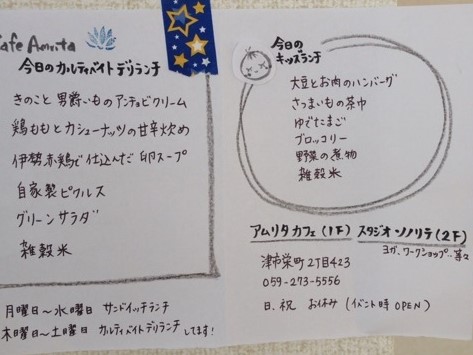 Cafe Amrita
今日のカルティベイトデリランチ
きのこと男爵いものアンチョビクリーム
鶏ももとカシューナッツの甘辛炒め
伊勢赤鶏で仕込んだ卵スープ
自家製ピクルス
グリーンサラダ
雑穀米
月曜日〜水曜日 サンドイッチランチ
木曜日〜土曜日 カルティベイトデリランチしてます!
今日の
キッズランチ
大豆とお肉のハンバーグ
さつまいもの茶巾
ゆでたまご
ブロッコリー
野菜の煮物
雑穀米
アムリタカフェ(1F) スタジオソノリテ(2F)
ヨガ、ワークショップ…等々
津市栄町2丁目423
059-273-5556
日、祝 お休み (イベント時OPEN)